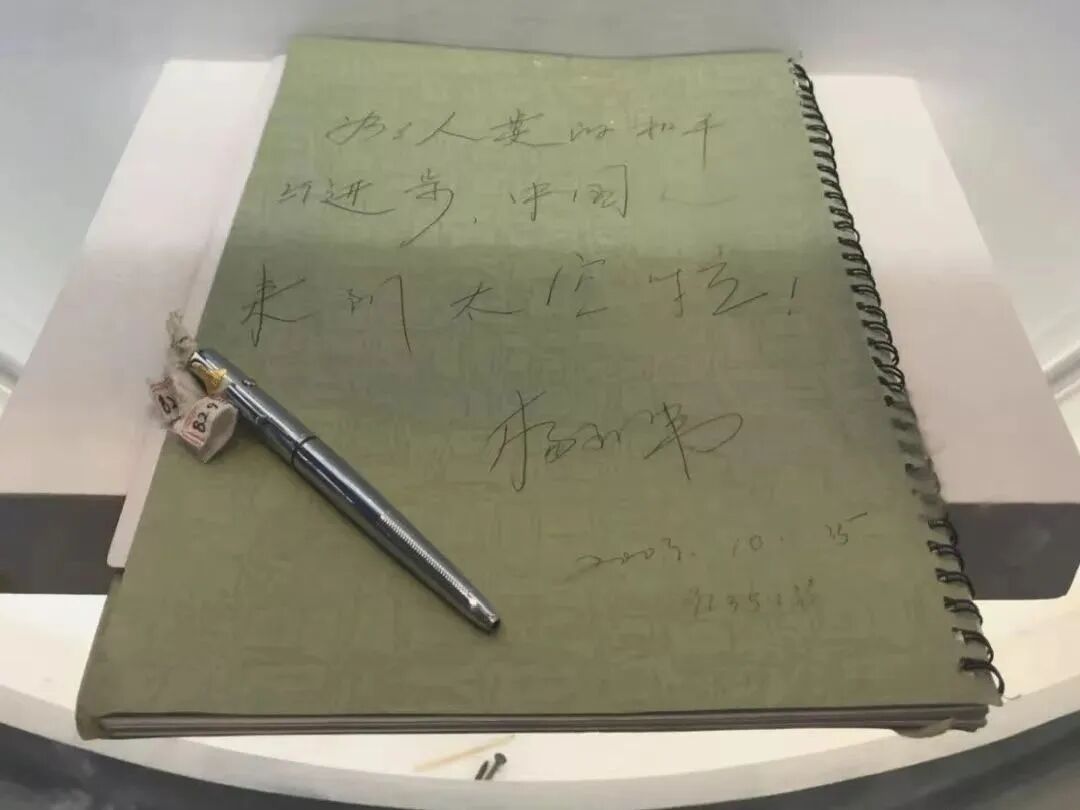 为了人类的和平
与进步，中国人
来到太空啦！
杨利伟
2003.10.15
829